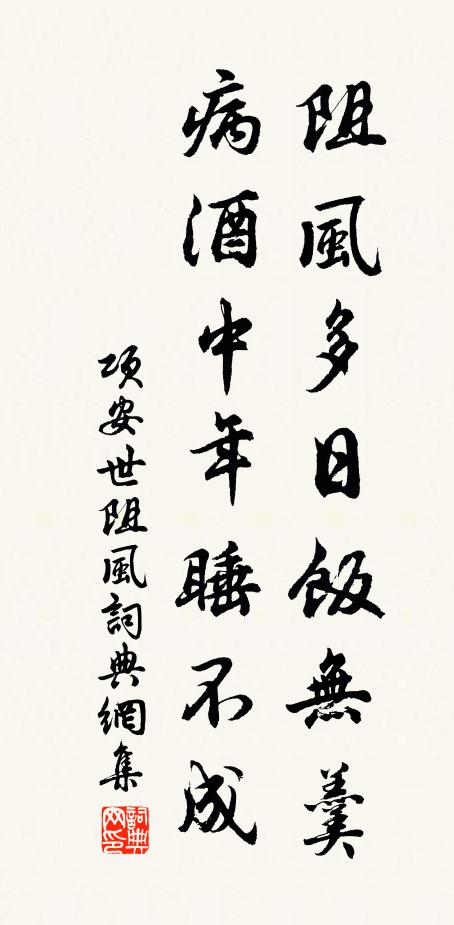 阻風多日飯無羹
病酒中年睡不成
項安世阻風詞典網集
詞典網印